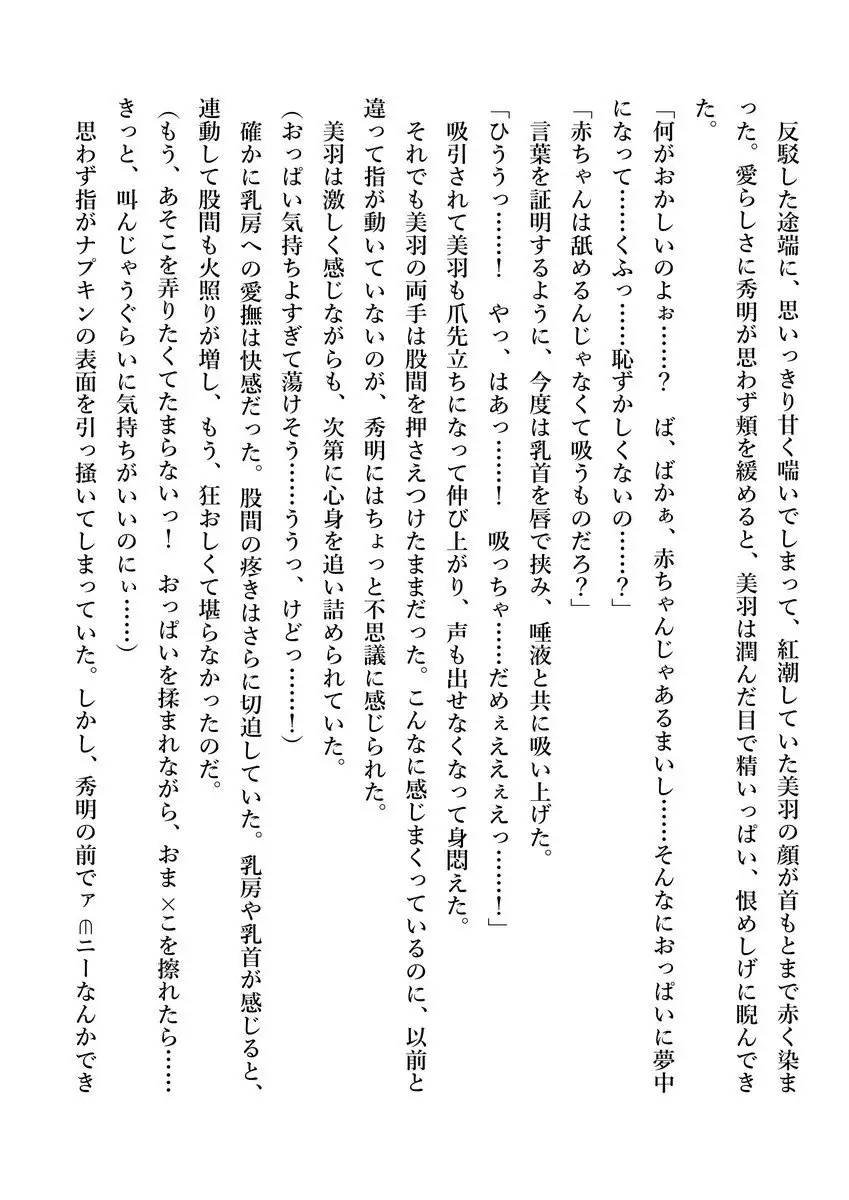 反駁した途端に、思いっきり甘く喘いでしまって、紅潮していた美羽の顔が首もとまで赤く染ま
った。愛らしさに秀明が思わず頬を緩めると、美羽は潤んだ目で精いっぱい、恨めしげに睨んでき
た。
「何がおかしいのよぉ……？　ば、ばかぁ、赤ちゃんじゃあるまいし……そんなにおっぱいに夢中
になって……くふっ……恥ずかしくないの……？」
「赤ちゃんは舐めるんじゃなくて吸うものだろ？」
言葉を証明するように、今度は乳首を唇で挟み、唾液と共に吸い上げた。
「ひううっ……！　やっ、はあっ……！　吸っちゃ……だめぇええぇえっ……！」
吸引されて美羽も爪先立ちになって伸び上がり、声も出せなくなって身悶えた。
それでも美羽の両手は股間を押さえつけたままだった。こんなに感じまくっているのに、以前と
違って指が動いていないのが、秀明にはちょっと不思議に感じられた。
美羽は激しく感じながらも、次第に心身を追い詰められていた。
(おっぱい気持ちよすぎて蕩けそう……ううっ、けどっ……！)
確かに乳房への愛撫は快感だった。股間の疼きはさらに切迫していた。乳房や乳首が感じると、
連動して股間も火照りが増し、もう、狂おしくて堪らなかったのだ。
(もう、あそこを弄りたくてたまらないっ！　おっぱいを揉まれながら、おま×こを擦れたら……
きっと、叫んじゃうぐらいに気持ちがいいのにぃ……)
思わず指がナプキンの表面を引っ掻いてしまっていた。しかし、秀明の前でァ∋ニーなんかでき